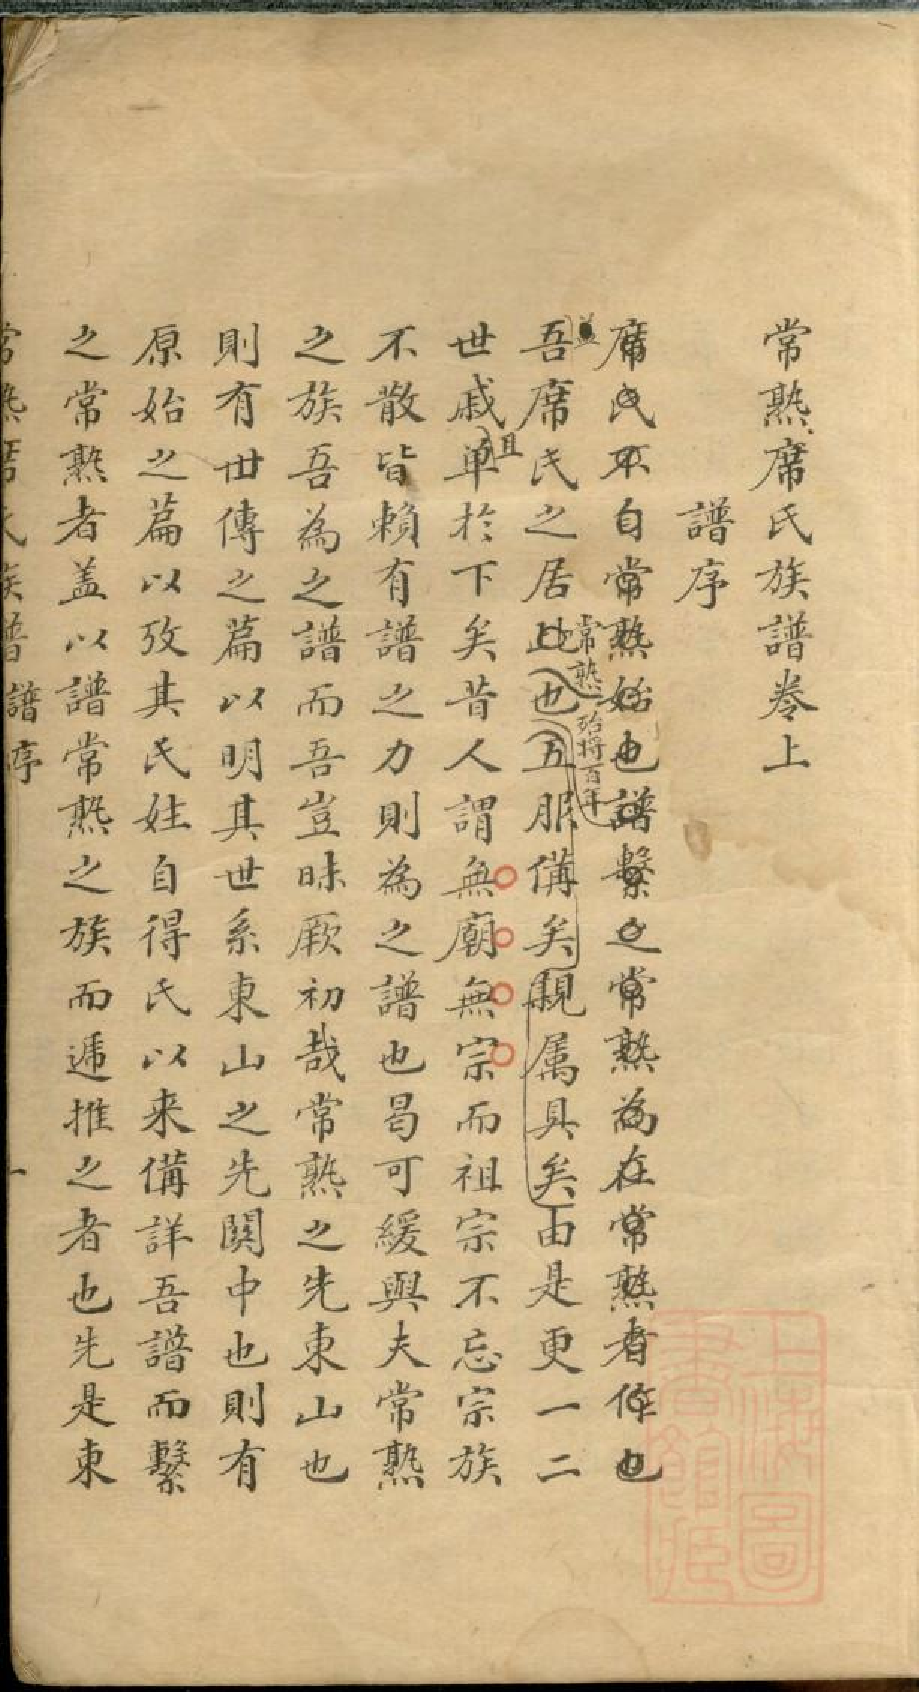 常熟席氏族譜卷上
譜序
席氏不自常熟始也譜繫之常熟為在常熟者作也
吾席氏之居此也五服備矣親属具矣由是更一二
常熟殆將百年
世戚單於下矣昔人謂無廟無宗而祖宗不忘宗族
且
不散皆賴有譜之力則為之譜也曷可緩與夫常熟
之族吾為之譜而吾豈昧厥初哉常熟之先東山也
則有世傳之篇以明其世系東山之先関中也則有
原始之篇以攷其氏姓自得氏以来備詳吾譜而繫
之常熟者盖以譜常熟之族而遞推之者也先是東
常熟席氏族譜 譜序 一
上海圖書館藏